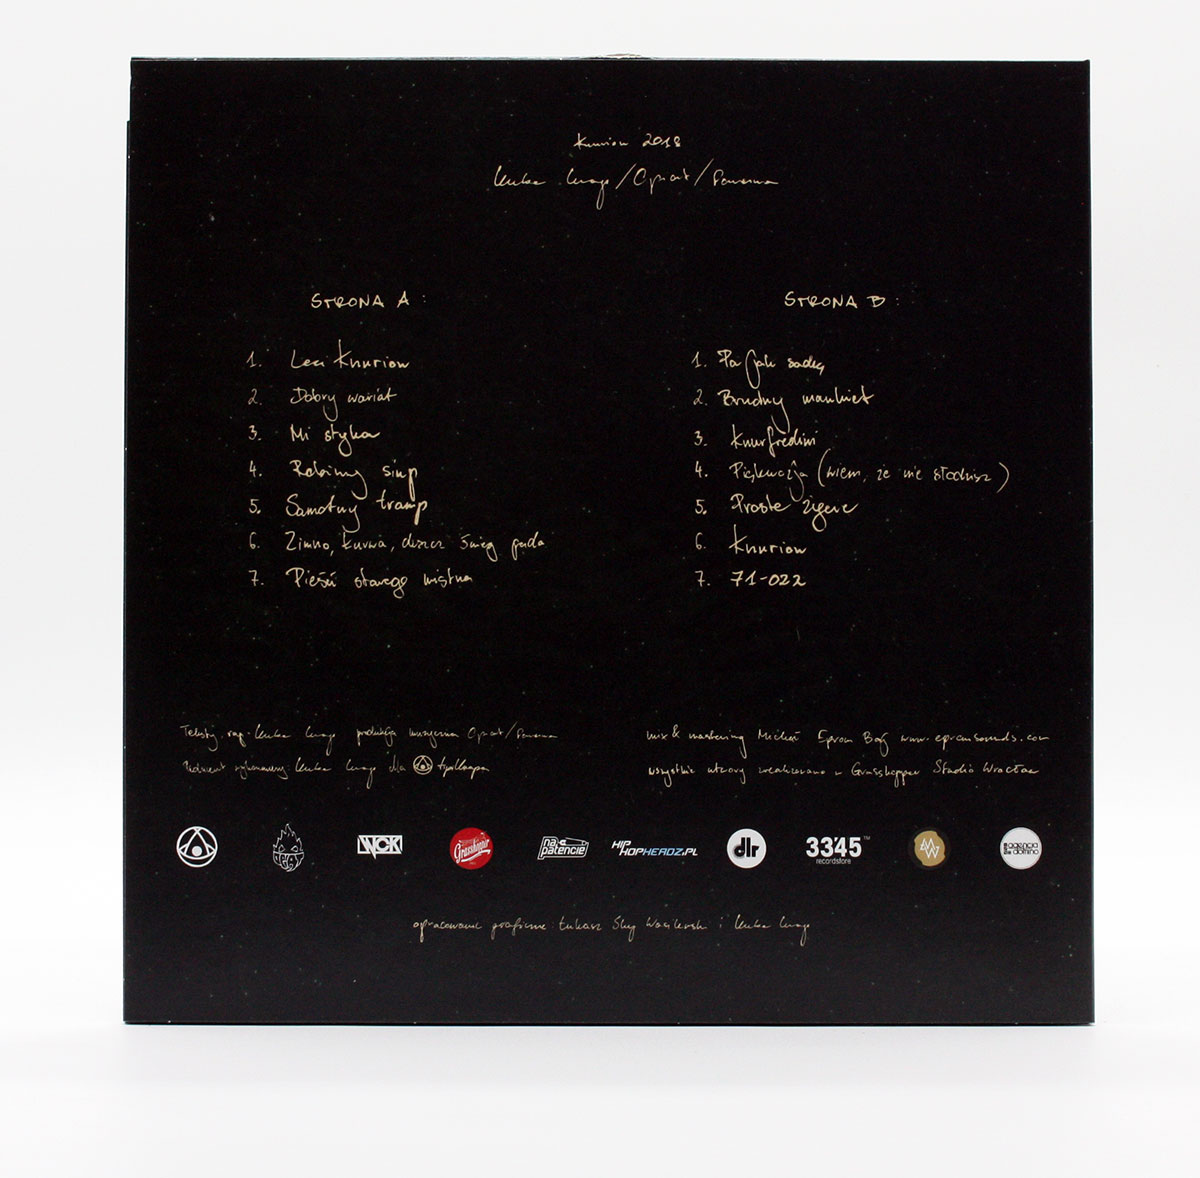 Knurion 2018
Kuba Knap / Opiat / Panama
STRONA A:
1. Leci Knurion
2. Dobry wariat
3. Mi styka
4. Robimy siup
5. Samotny tramp
6. Zimno, kurwa, deszcz śnieg pada
7. Pieśń starego mistrza
STRONA B:
1. Pa jak sadzę
2. Brudny mankiet
3. Knurfredini
4. Piękwazja (wiem, że nie słodzisz)
5. Proste życie
6. Knurion
7. 71-022
Teksty, rap: Kuba Knap produkcja muzyczna Opiat/Panama
wykonawczy: Kuba Knap dla
mix & mastering Michał Eprom Baj www.epromsounds.com
wszystkie utwory zrealizowano w Grasshopper Studio Wrocław
WCK
Grasshopper
na patencie
HIP HOPHEADZ.PL
dlr
3345 TM
recordstore
agencja
domino
opracowanie graficzne Łukasz i Kuba Knap